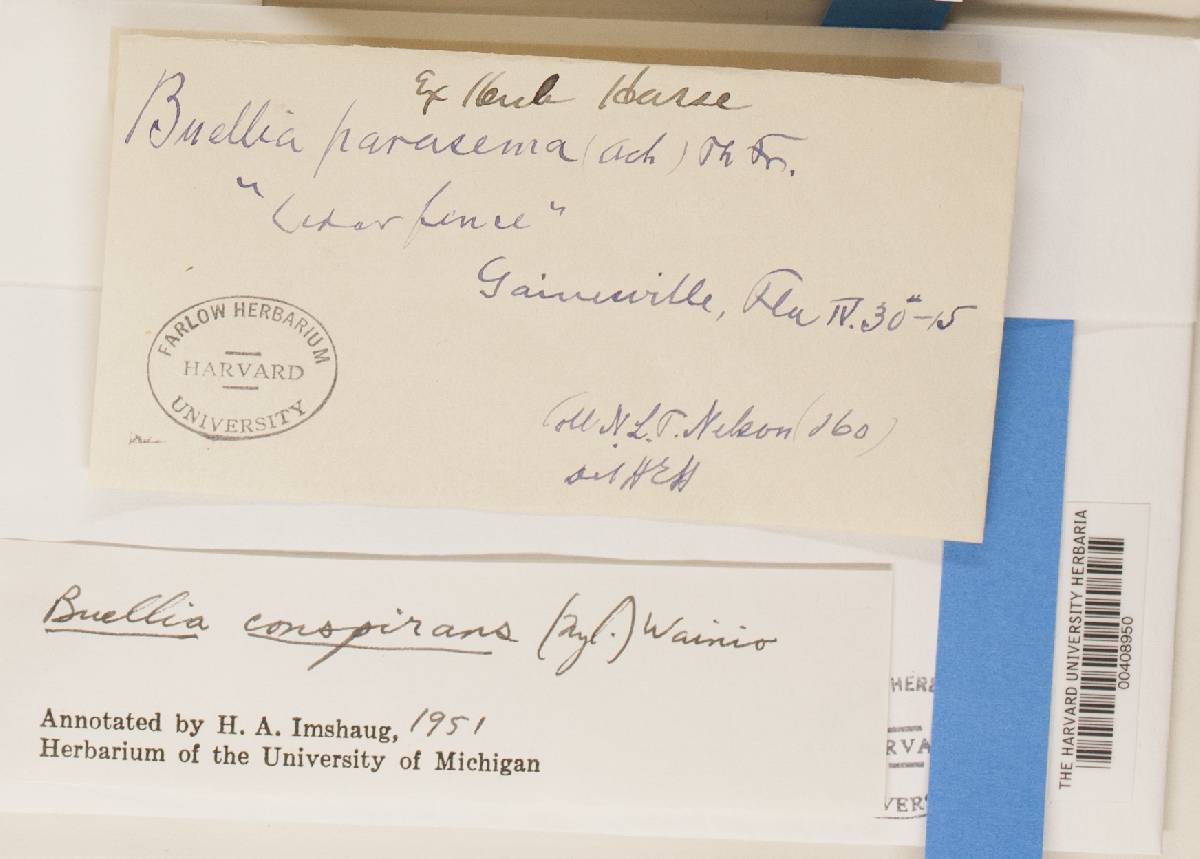 Ex Herb Hasse
Buellia parasema (Ach) Th Fr.
"Cedar fence"
Gainesville, Fla IV.30"-15
FARLOW HERBARIUM
HARVARD
UNIVERSITY
Coll N.L.T. Nelson (160)
det HEH
Buellia conspirans (Nyl.) Wainio
Annotated by H. A. Imshaug, 1951
Herbarium of the University of Michigan
HER
RVA
VER
THE HARVARD UNIVERSITY HERBARIA
00408950